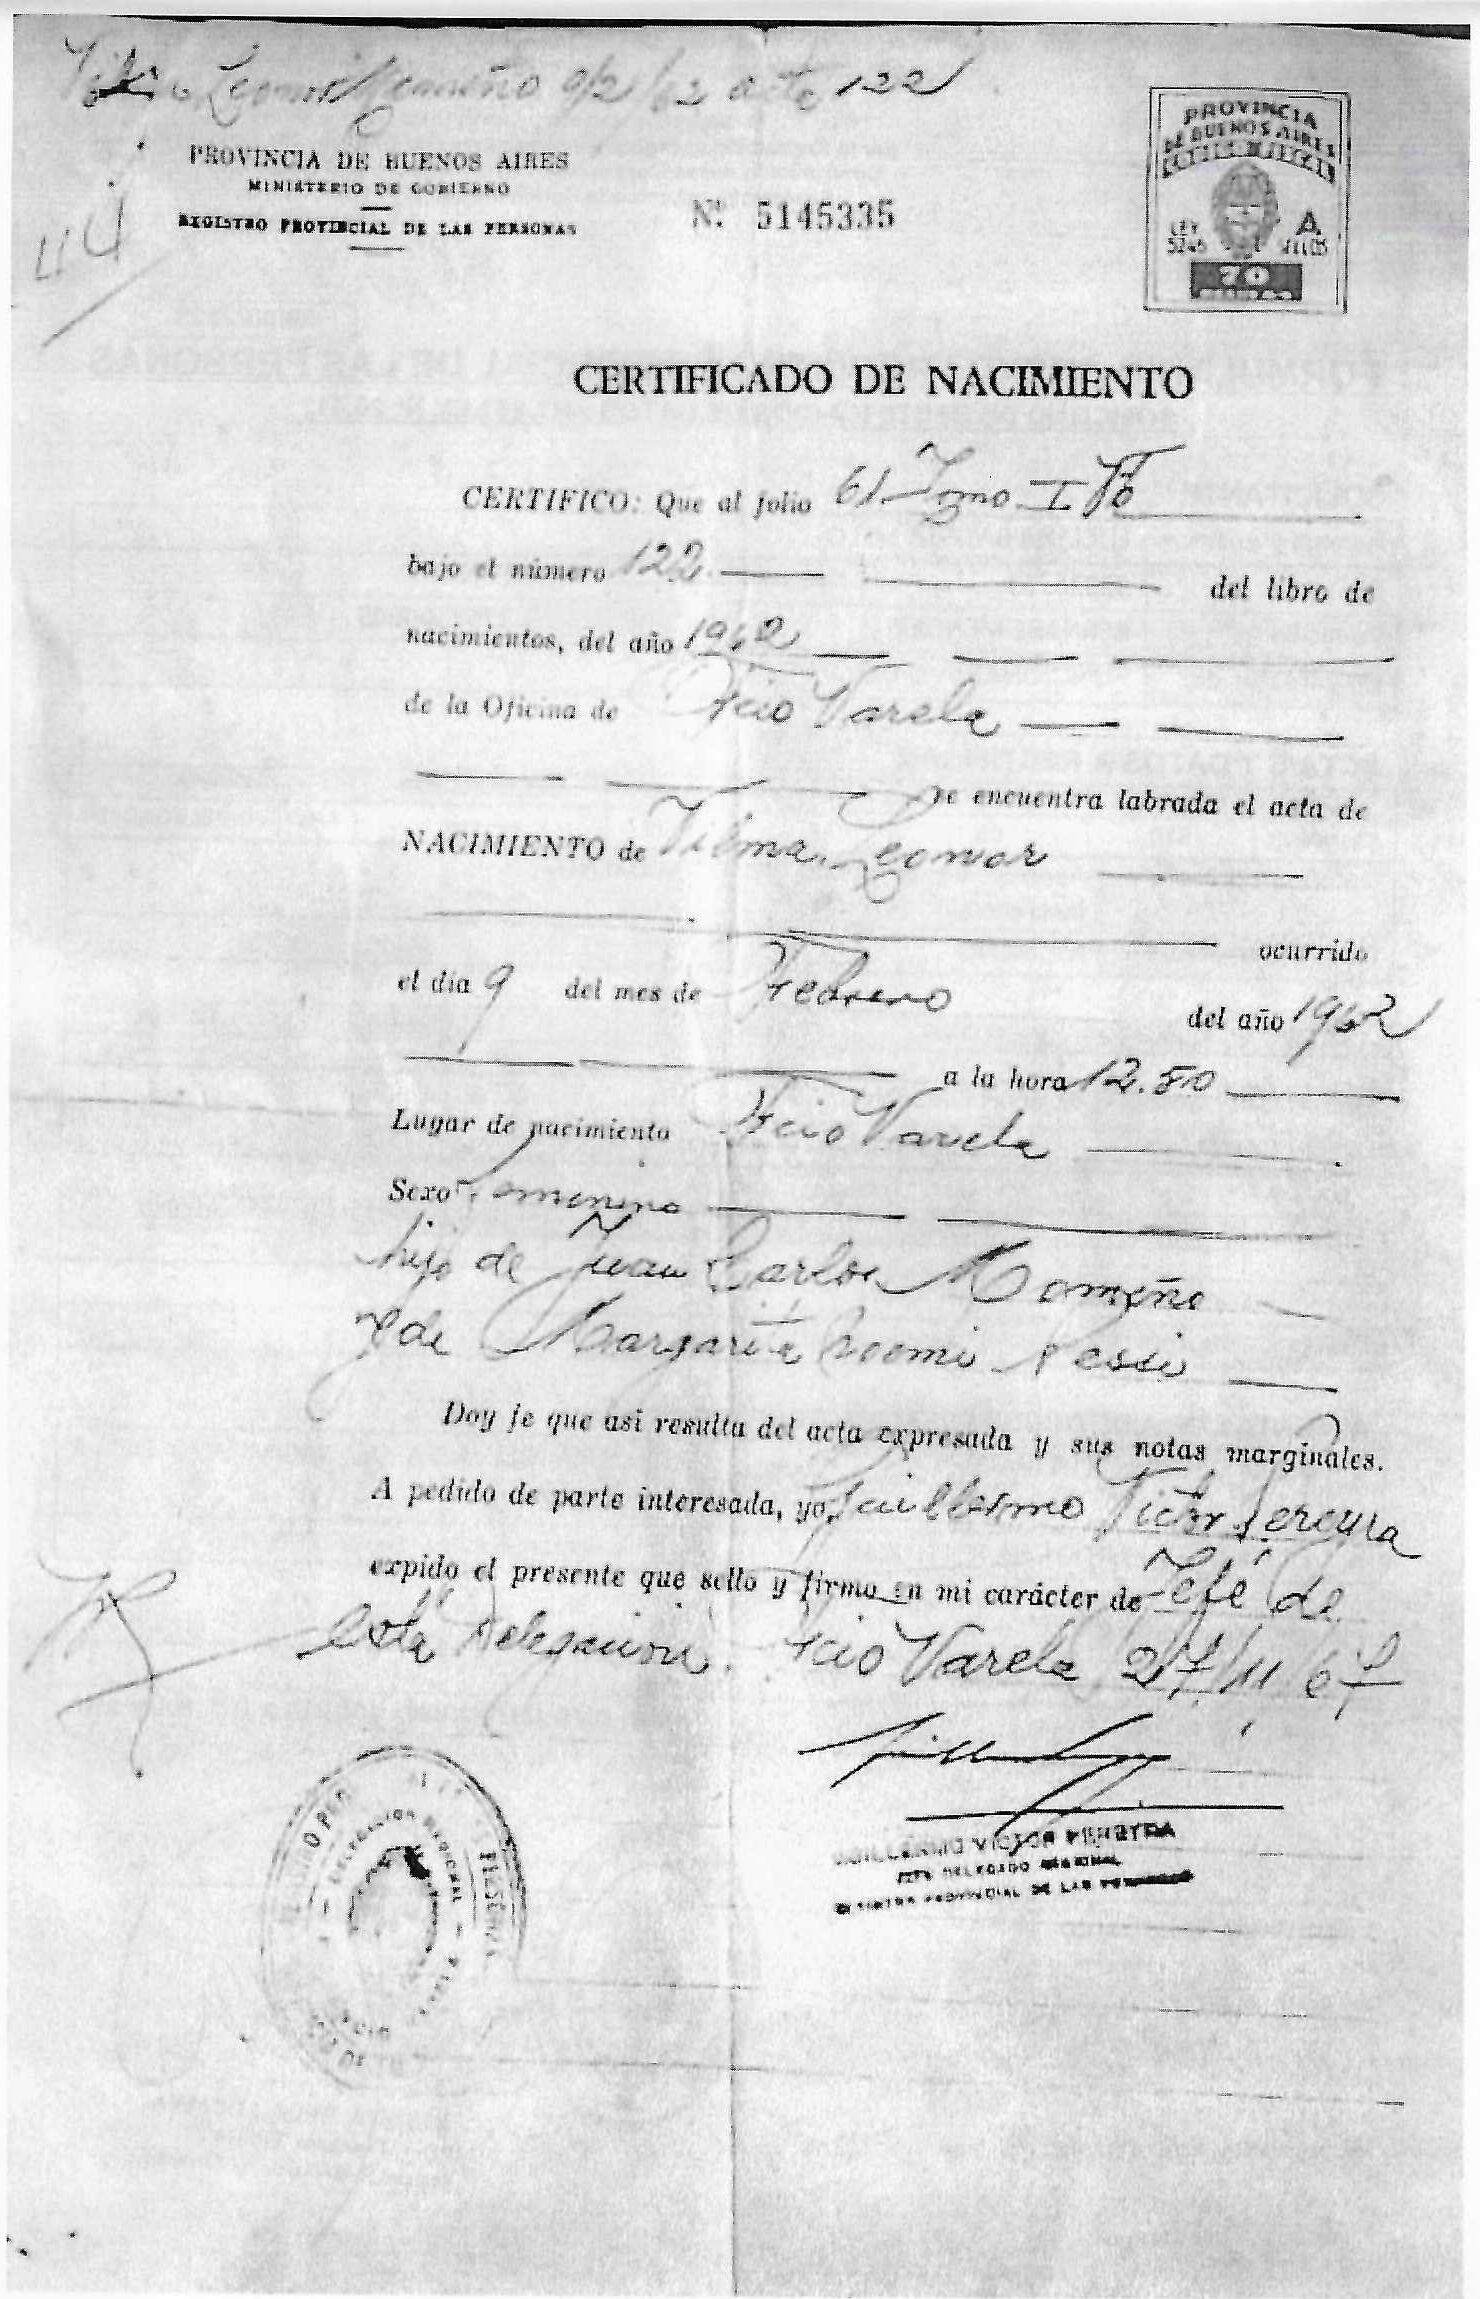 Leonor Momeño 9/2/62 acta 122
PROVINCIA DE BUENOS AIRES
MINISTERIO DE GOBIERNO
REGISTRO PROVINCIAL DE LAS PERSONAS
Nº 5145335
PROVINCIA
DE BUENOS AIRES
LEY A
5246
70
CERTIFICADO DE NACIMIENTO
CERTIFICO: Que al folio 61 Tomo I
bajo el número 122 del libro de
nacimientos, del año 1962
de la Oficina de Fcio Varela
se encuentra labrada el acta de
NACIMIENTO de Vilma Leonor
ocurrido
el día 9 del mes de Febrero del año 1962
a la hora 12.50
Lugar de nacimiento Fcio Varela
Sexo Femenino
hija de Juan Carlos Momeño
y de Margarita Noemi
Doy fe que así resulta del acta expresada y sus notas marginales.
A pedido de parte interesada, yo, Guillermo Victor Pereyra
expido el presente que sello y firmo en mi carácter de Jefe de
esta Delegacion. Fcio Varela 27/11/67
GUILLERMO VICTOR PEREYRA
JEFE DELEGADO REGIONAL
REGISTRO PROVINCIAL DE LAS PERSONAS
DELEGACION REGIONAL